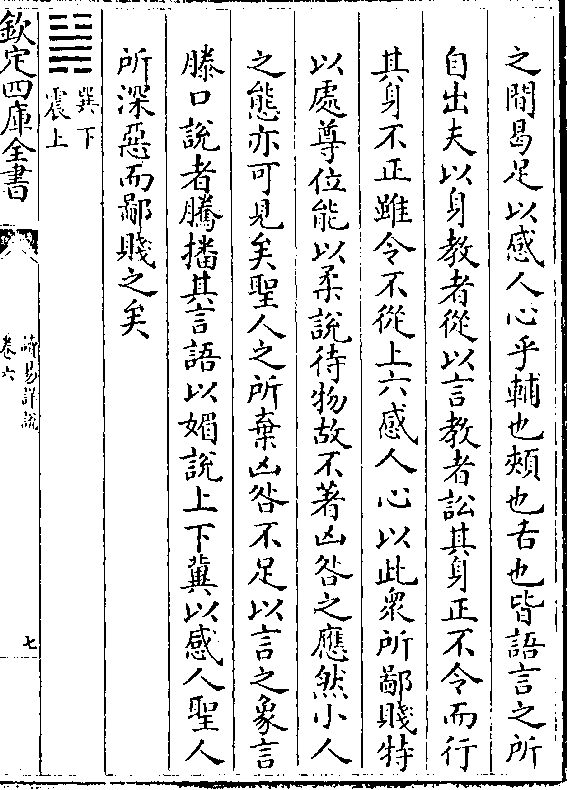 之間曷足以感人心乎輔也頰也舌也皆語言之所
自出夫以身教者從以言教者訟其身正不令而行
其身不正雖令不從上六感人心以此衆所鄙賤特
以處尊位能以柔說待物故不著凶咎之應然小人
之態亦可見矣聖人之所棄凶咎不足以言之象言
滕口說者騰播其言語以媚說上下冀以感人聖人
所深惡而鄙賤之矣
䷟
巽下
震上
欽定四庫全書
讀易詳說
卷六
七